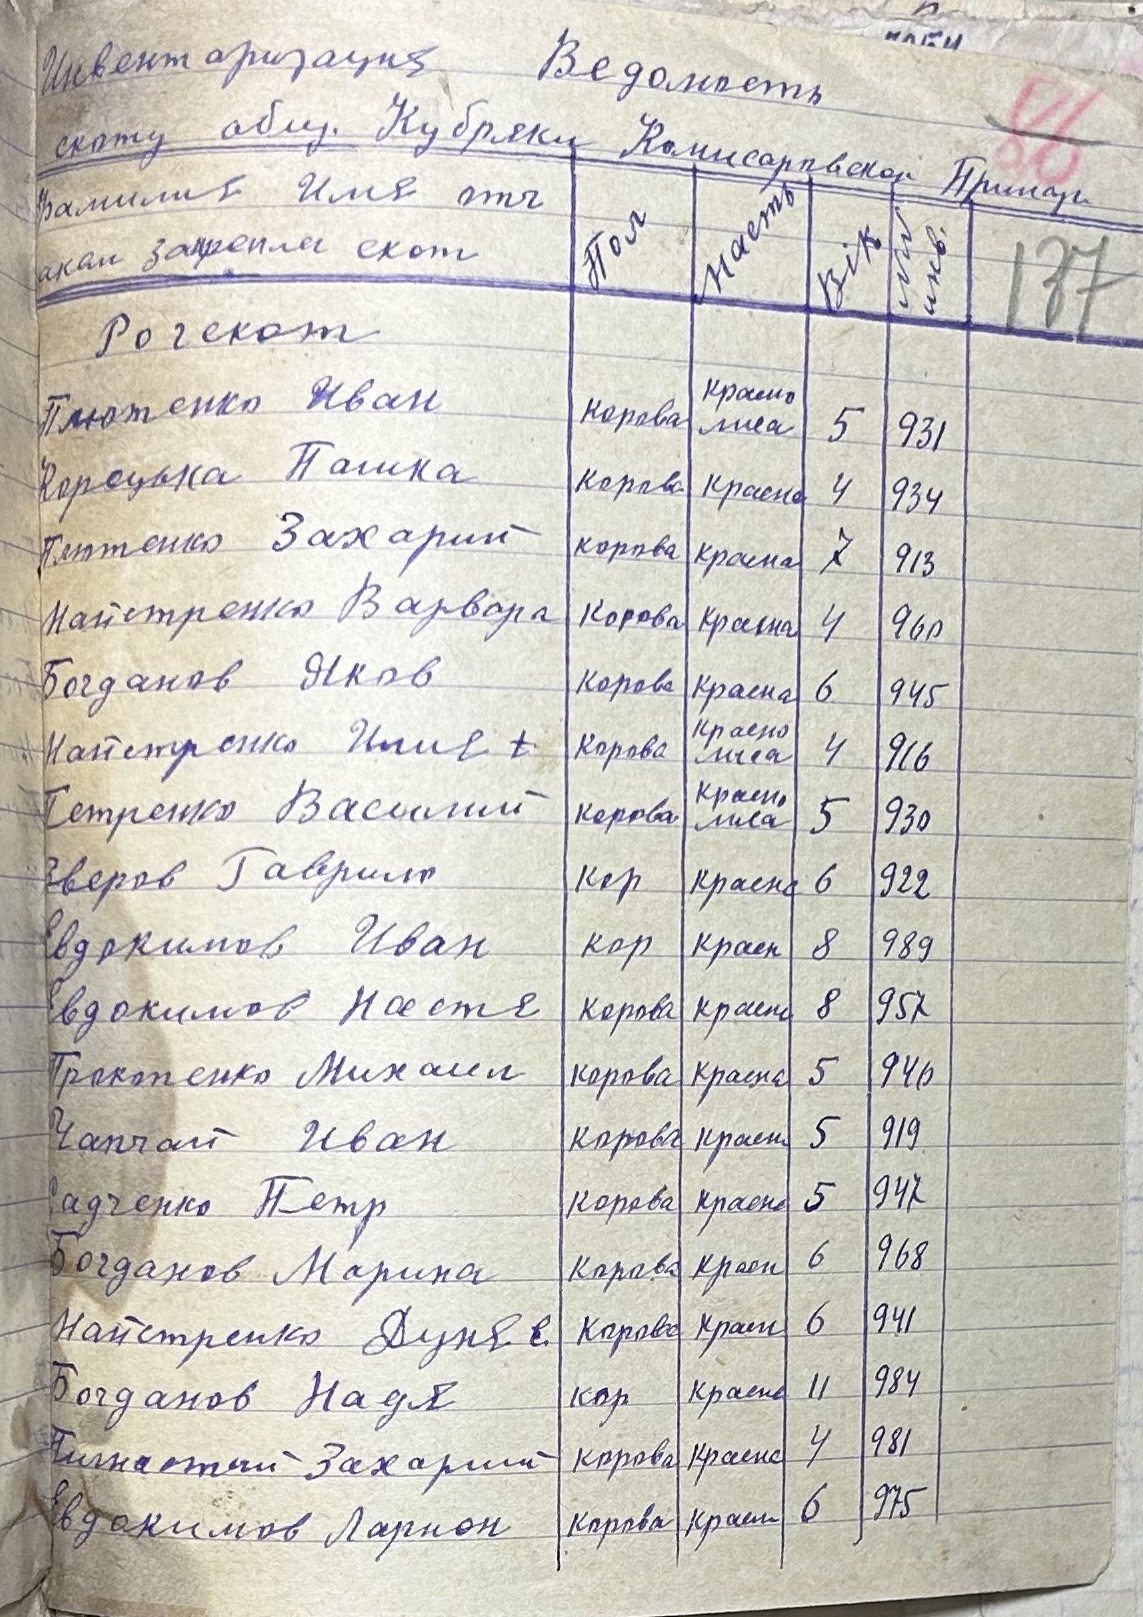 86
Инвентаризация Ведомость
скоту общ. Кубряки Комисаровской Примар
Фамилия Имя отч Пол Масть Вік №№ инв. 137
закреплен скот
Рогскот
Плютенко Иван Корова Красно лиса 5 931
Корецька Пашка Корова Красна 4 934
Плютенко Захарий Корова Красна 7 913
Майстренко Варвара Корова Красна 4 960
Богданов Яков Корова Красна 6 945
Майстренко Илия t Корова Красно лиса 4 916
Петренко Василий Корова Красно лиса 5 930
Зверов Гаврило Кор Красна 6 922
Евдокимов Иван Кор Красн 8 989
Евдокимов Настя Корова Красна 8 957
Прокопенко Михаил Корова Красна 5 940
Чапчай Иван Корова Красн 5 919
Радченко Петр Корова Красна 5 947
Богданов Марина Корова Красн 6 968
Майстренко Дуня Корова Красн 6 941
Богданов Надя Кор Красна 11 984
Захарий Корова Красна 4 981
Евдокимов Ларион Корова Красн 6 975